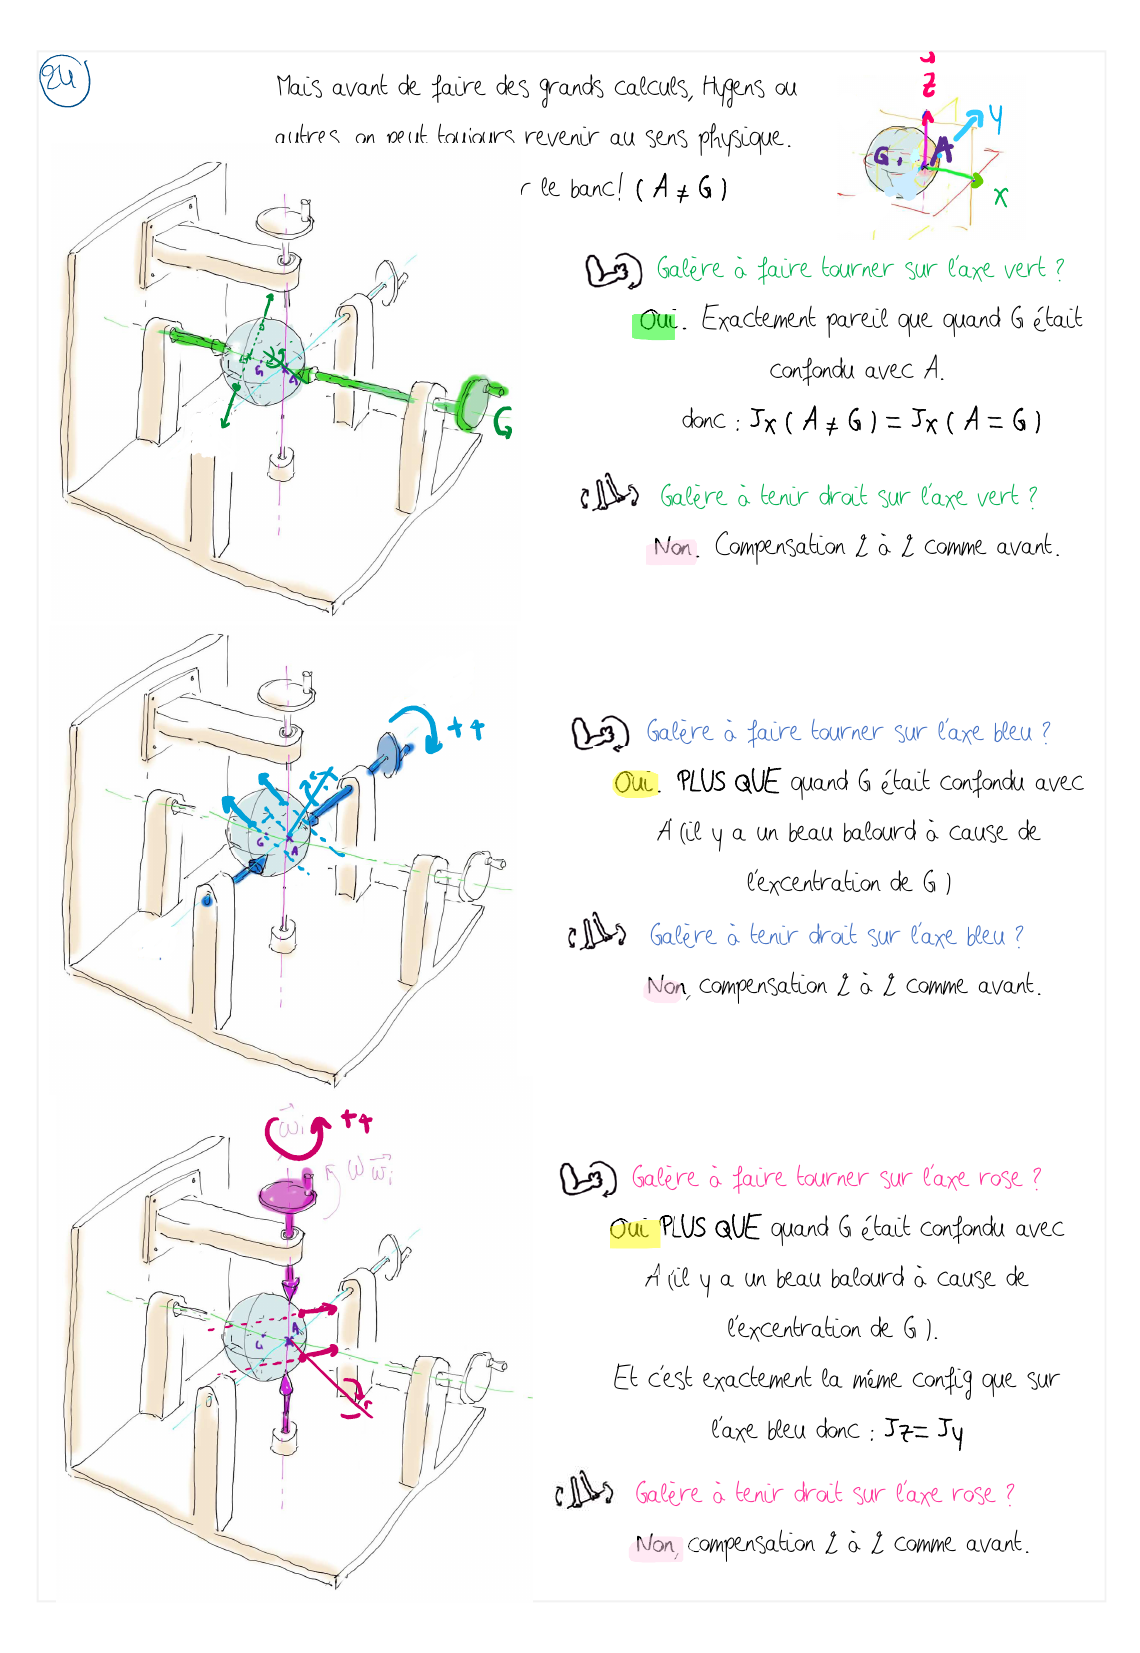 24
Mais avant de faire des grands calculs, Hygens ou
autres, on peut toujours revenir au sens physique.
le banc! (A ≠ G)
Z
Y
G
A
X
Galère à faire tourner sur l'axe vert ?
Oui. Exactement pareil que quand G était
confondu avec A.
donc : Jx (A ≠ G) = Jx (A = G)
Galère à tenir droit sur l'axe vert ?
Non. Compensation 2 à 2 comme avant.
G
A
Galère à faire tourner sur l'axe bleu ?
Oui. PLUS QUE quand G était confondu avec
A (il y a un beau balourd à cause de
l'excentration de G)
Galère à tenir droit sur l'axe bleu ?
Non, compensation 2 à 2 comme avant.
G
A
Galère à faire tourner sur l'axe rose ?
Oui PLUS QUE quand G était confondu avec
A (il y a un beau balourd à cause de
l'excentration de G).
Et c'est exactement la même config que sur
l'axe bleu donc : Jz = Jy
Galère à tenir droit sur l'axe rose ?
Non, compensation 2 à 2 comme avant.
G
A